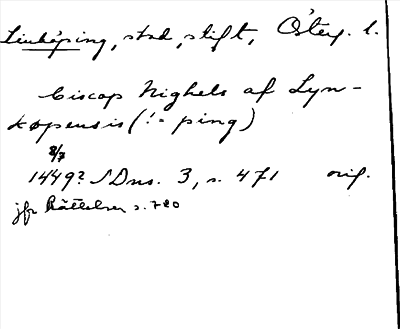 Linköping, stad, stift, Österg. l.
biscop Nighels af Lyn-
kopensis (!= ping)
8/7
1449? SDns. 3, s. 471 orig.
jfr Rättelser s. 720